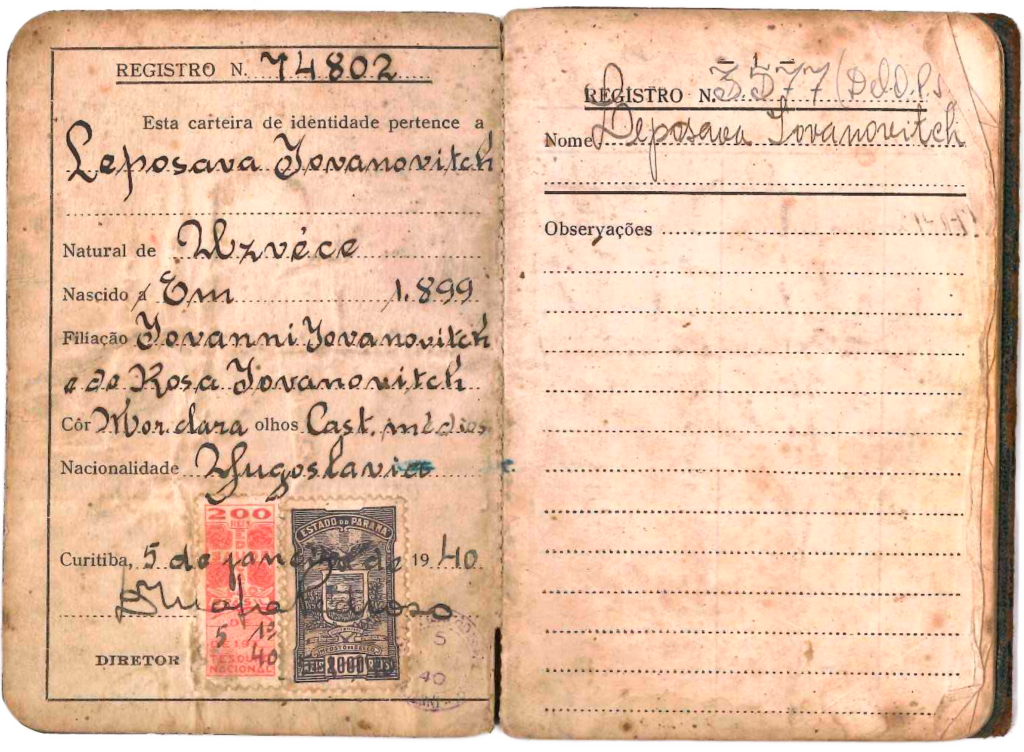 REGISTRO N. 74802
Esta carteira de identidade pertence a
Leposava Jovanovitch
Natural de Uzvéce
Nascido a Em 1.899
Filiação Jovanni Jovanovitch
e de Rosa Jovanovitch
Côr Mor. clara olhos Cast. médios
Nacionalidade Yugoslavia
200
ESTADO DO PARANÁ
Curitiba, 5 de janeiro de 1940
5 1º
40
TESOURO
NACIONAL
DIRETOR
REIS 2000 REIS
5
40
REGISTRO N. 3577
Nome Leposava Jovanovitch
Observações